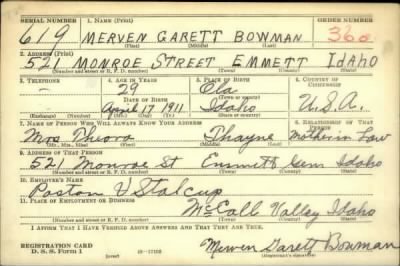 SERIAL NUMBER 1. NAME (Print) ORDER NUMBER
619 MERVEN GARETT BOWMAN 360
(First) (Middle) (Last)
2. ADDRESS (Print)
521 MONROE STREET EMMETT IDAHO
(Number and street or R. F. D. number) (Town) (County) (State)
3. TELEPHONE 4. AGE IN YEARS 5. PLACE OF BIRTH 6. COUNTRY OF CITIZENSHIP
- 29 Ola
DATE OF BIRTH (Town or county)
April 17 1911 Idaho U.S.A.
(Exchange) (Number) (Mo.) (Day) (Yr.) (State or country)
7. NAME OF PERSON WHO WILL ALWAYS KNOW YOUR ADDRESS 8. RELATIONSHIP OF THAT PERSON
Mrs Theora Thayne Mother in Law
(Mr., Mrs., Miss) (First) (Middle) (Last)
9. ADDRESS OF THAT PERSON
521 Monroe St Emmett Gem Idaho
(Number and street or R. F. D. number) (Town) (County) (State)
10. EMPLOYER'S NAME
Poston V Stalcup
11. PLACE OF EMPLOYMENT OR BUSINESS
McCall Valley Idaho
(Number and street or R. F. D. number) (Town) (County) (State)
I AFFIRM THAT I HAVE VERIFIED ABOVE ANSWERS AND THAT THEY ARE TRUE.
REGISTRATION CARD
D. S. S. Form 1 (over) Merven Garett Bowman
(Registrant's signature)